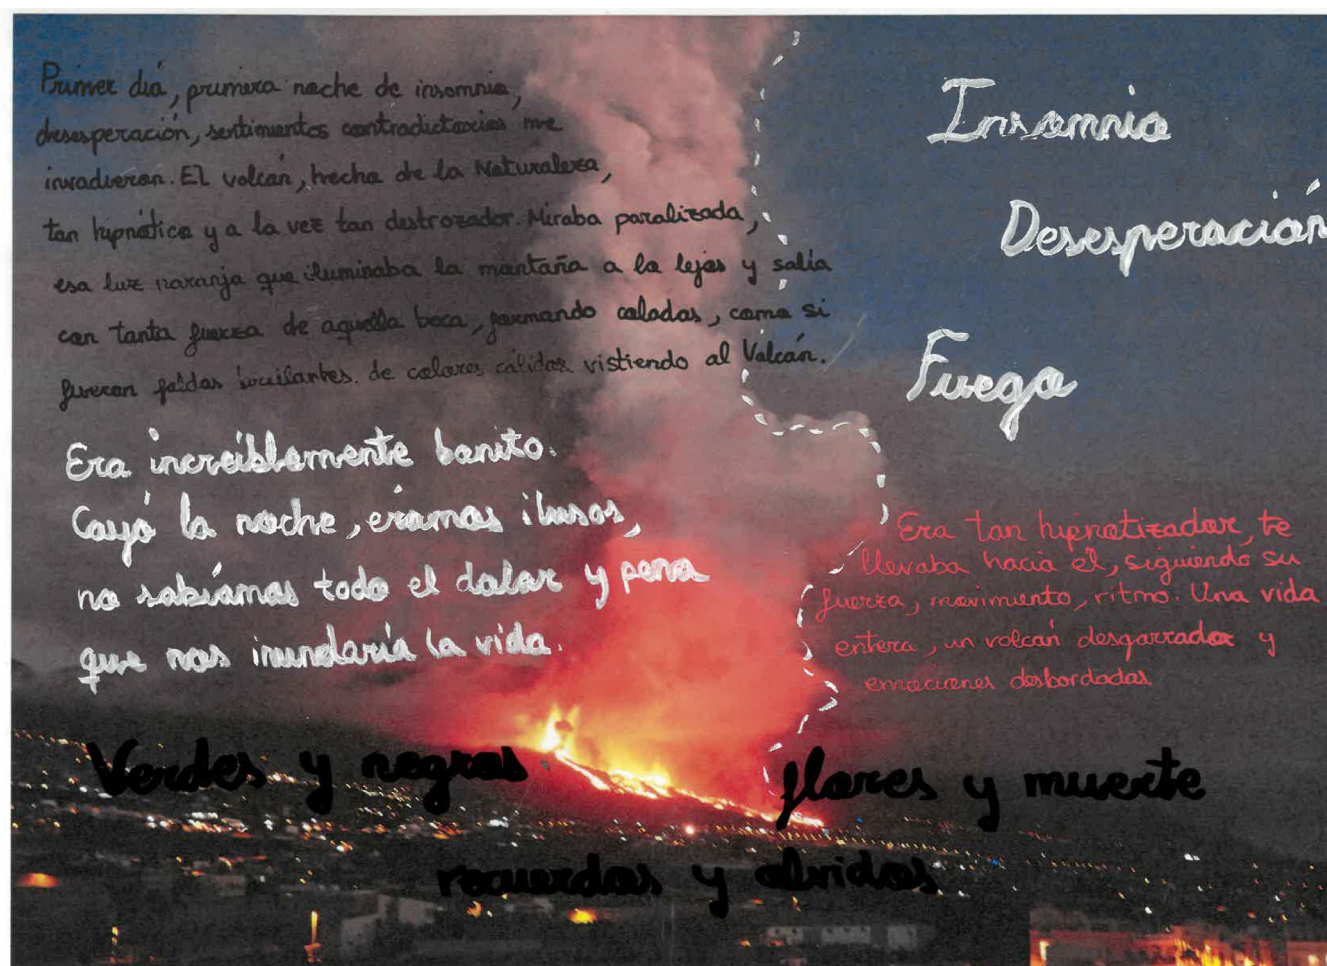 Primer día, primera noche de insomnio,
desesperación, sentimientos contradictorios me
invadieron. El volcán, hecho de la Naturaleza,
tan hipnótico y a la vez tan destrozador. Miraba paralizada,
esa luz naranja que iluminaba la montaña a lo lejos y salía
con tanta fuerza de aquella boca, formando coladas, como si
fueran faldas oscilantes de colores cálidos vistiendo al Volcán.
Era increíblemente bonito.
Cayó la noche, éramos ilusos,
no sabíamos todo el dolor y pena
que nos inundaría la vida.
Insomnio
Desesperación
Fuego
Era tan hipnotizador, te
llevaba hacia él, siguiendo su
fuerza, movimiento, ritmo. Una vida
entera, un volcán desgarrador y
emociones desbordadas.
Verdes y negros
flores y muerte
recuerdos y olvidos